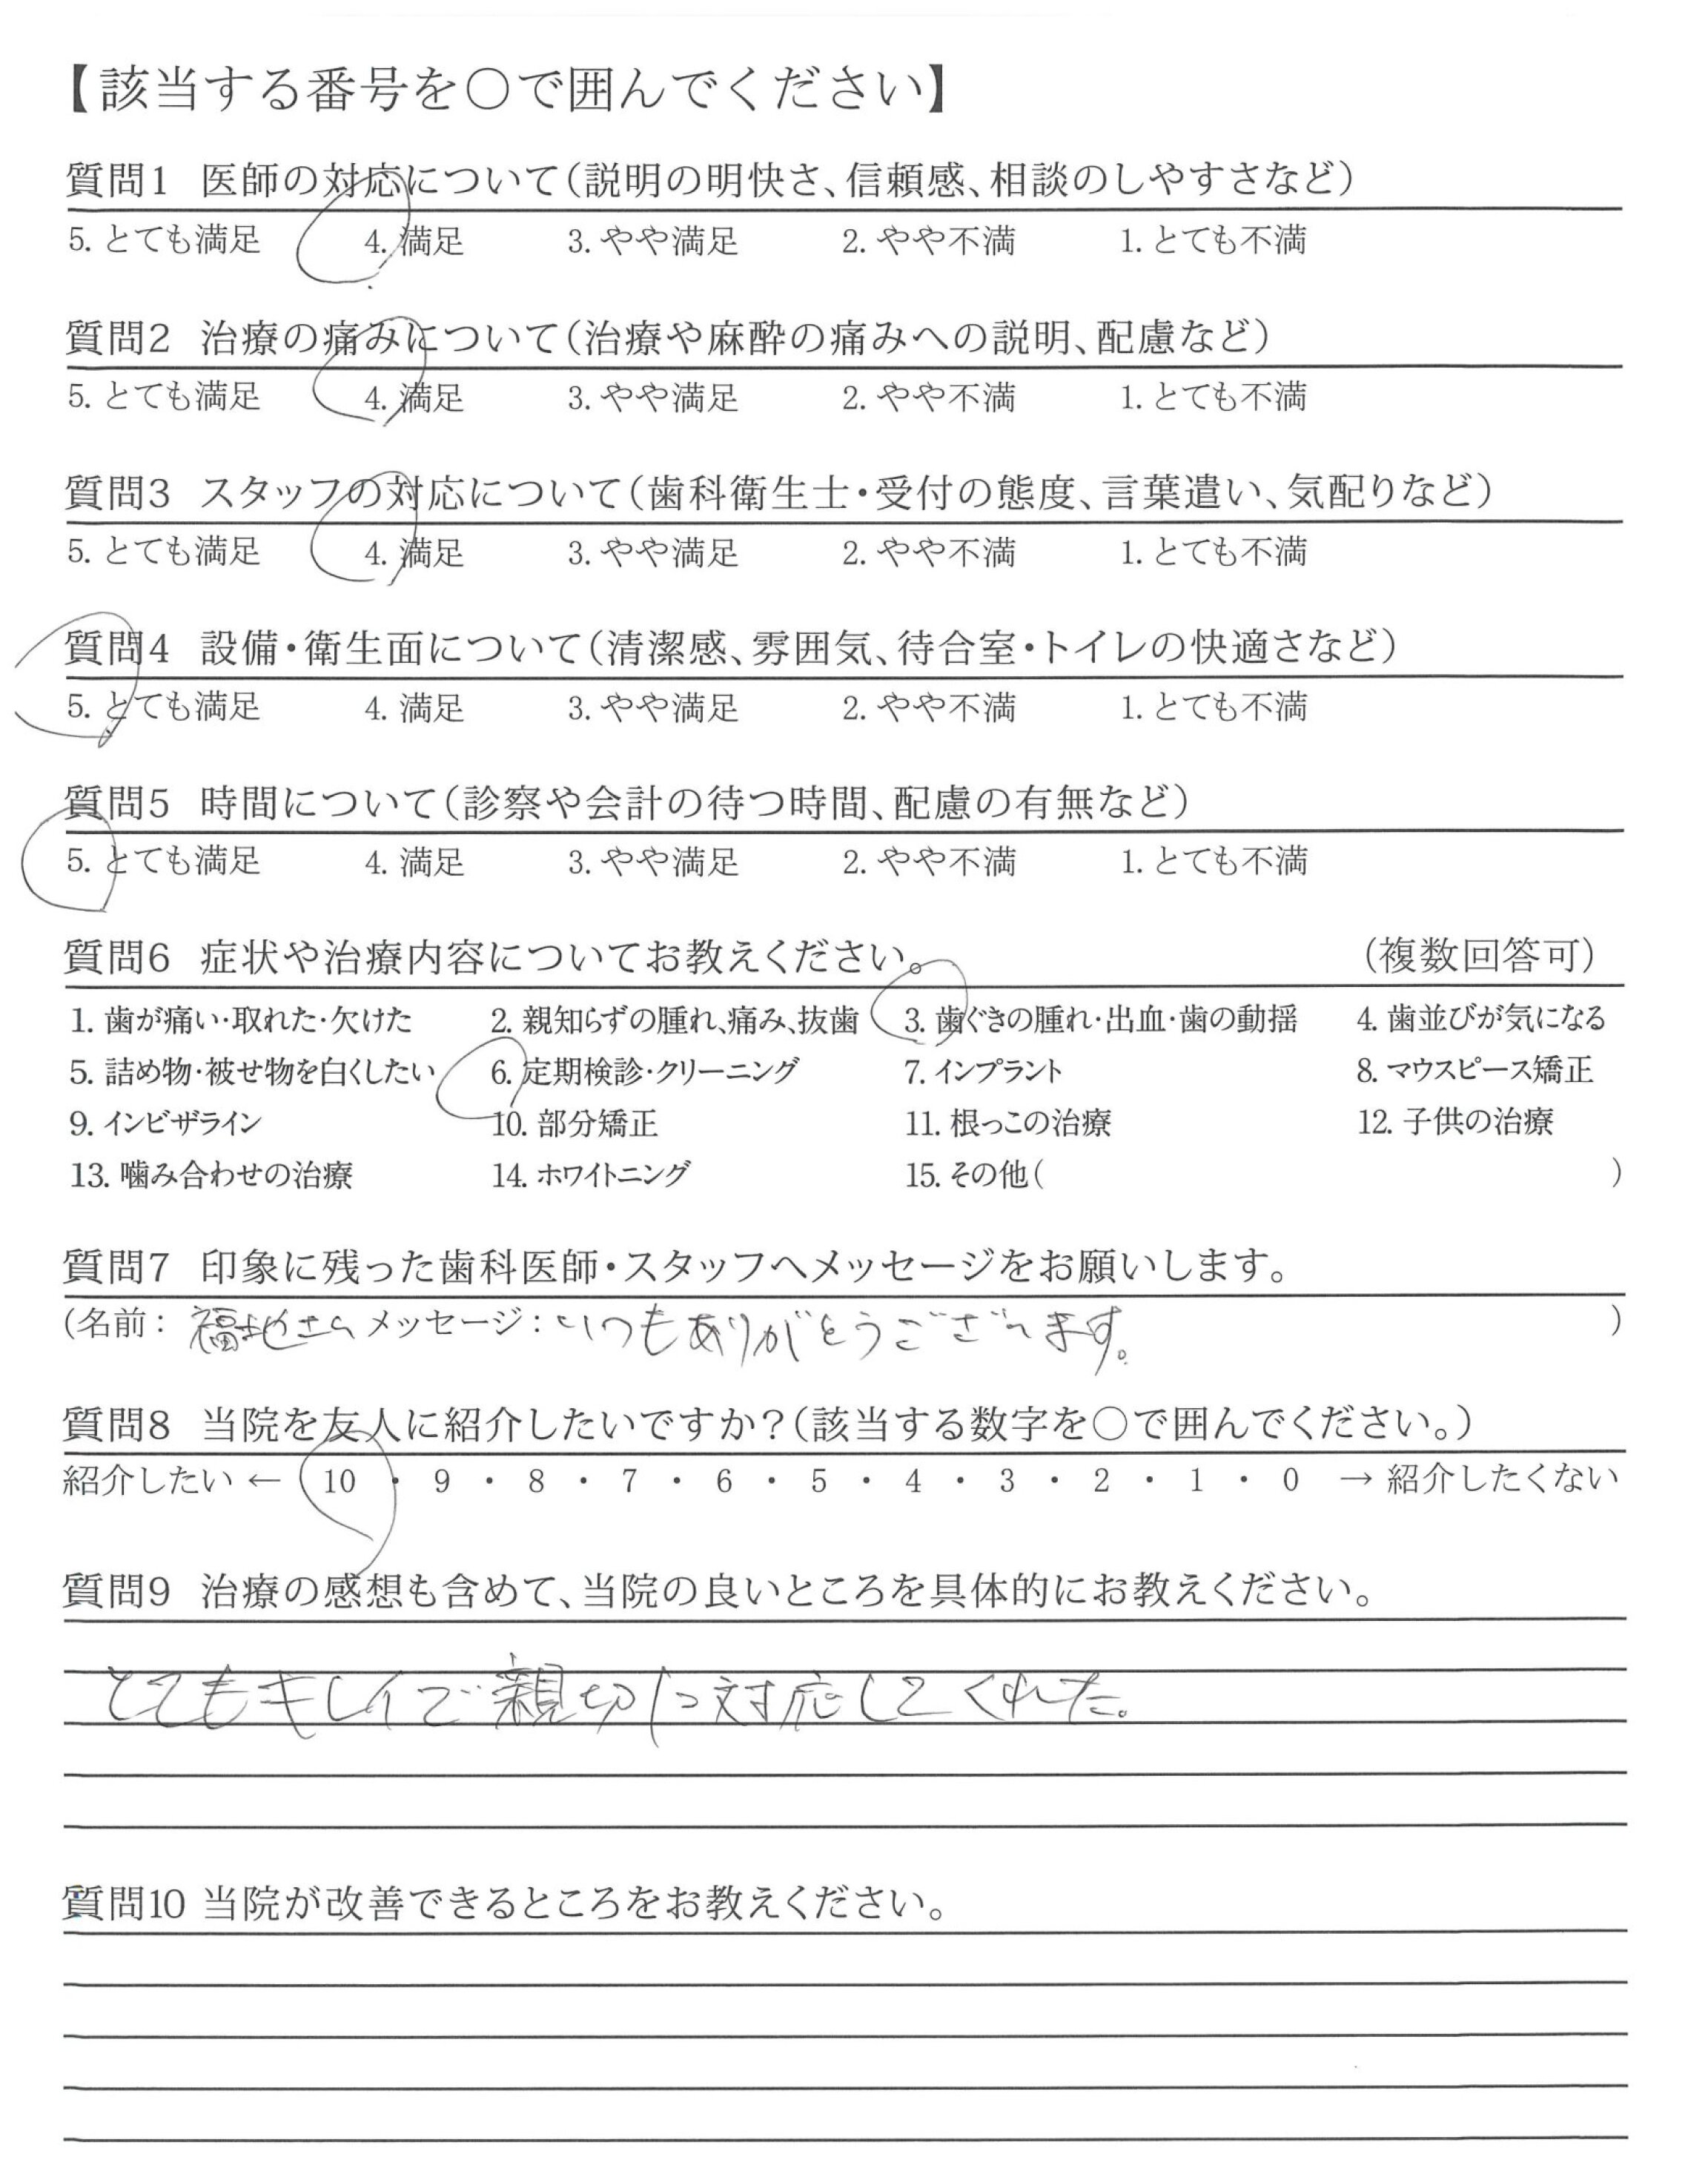 【該当する番号を○で囲んでください】
質問1 医師の対応について(説明の明快さ、信頼感、相談のしやすさなど)
5. とても満足 4. 満足 3. やや満足 2. やや不満 1. とても不満
質問2 治療の痛みについて(治療や麻酔の痛みへの説明、配慮など)
5. とても満足 4. 満足 3. やや満足 2. やや不満 1. とても不満
質問3 スタッフの対応について(歯科衛生士・受付の態度、言葉遣い、気配りなど)
5. とても満足 4. 満足 3. やや満足 2. やや不満 1. とても不満
質問4 設備・衛生面について(清潔感、雰囲気、待合室・トイレの快適さなど)
5. とても満足 4. 満足 3. やや満足 2. やや不満 1. とても不満
質問5 時間について(診察や会計の待つ時間、配慮の有無など)
5. とても満足 4. 満足 3. やや満足 2. やや不満 1. とても不満
質問6 症状や治療内容についてお教えください。 (複数回答可)
1. 歯が痛い・取れた・欠けた 2. 親知らずの腫れ、痛み、抜歯 3. 歯ぐきの腫れ・出血・歯の動揺 4. 歯並びが気になる
5. 詰め物・被せ物を白くしたい 6. 定期検診・クリーニング 7. インプラント 8. マウスピース矯正
9. インビザライン 10. 部分矯正 11. 根っこの治療 12. 子供の治療
13. 噛み合わせの治療 14. ホワイトニング 15. その他( )
質問7 印象に残った歯科医師・スタッフへメッセージをお願いします。
(名前: 福地さん メッセージ: いつもありがとうございます。 )
質問8 当院を友人に紹介したいですか?(該当する数字を○で囲んでください。)
紹介したい ← 10 ・ 9 ・ 8 ・ 7 ・ 6 ・ 5 ・ 4 ・ 3 ・ 2 ・ 1 ・ 0 → 紹介したくない
質問9 治療の感想も含めて、当院の良いところを具体的にお教えください。
とてもキレイで親切に対応してくれた。
質問10 当院が改善できるところをお教えください。